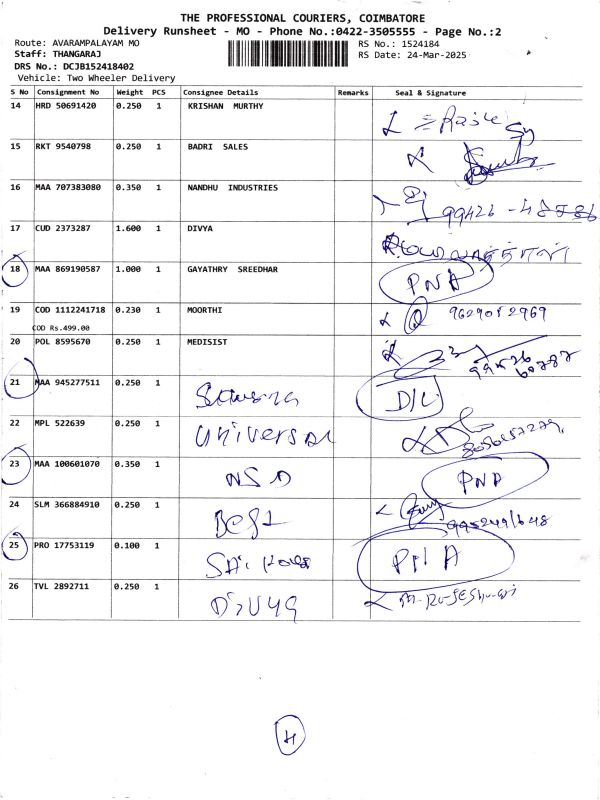 THE PROFESSIONAL COURIERS, COIMBATORE
Delivery Runsheet - MO - Phone No.:0422-3505555 - Page No.:2
Route: AVARAMPALAYAM MO RS No.: 1524184
Staff: THANGARAJ RS Date: 24-Mar-2025
DRS No.: DCJB152418402
Vehicle: Two Wheeler Delivery
S No Consignment No Weight PCS Consignee Details Remarks Seal & Signature
14 HRD 50691420 0.250 1 KRISHAN MURTHY
15 RKT 9540798 0.250 1 BADRI SALES
16 MAA 707383080 0.350 1 NANDHU INDUSTRIES
17 CUD 2373287 1.600 1 DIVYA
18 MAA 869190587 1.000 1 GAYATHRY SREEDHAR PNA
19 COD 1112241718 0.230 1 MOORTHI 9629012969
COD Rs.499.00
20 POL 8595670 0.250 1 MEDISIST
21 MAA 945277511 0.250 1 D/L
22 MPL 522639 0.250 1 Universal
23 MAA 100601070 0.350 1 NSD PND
24 SLM 366884910 0.250 1 Best
25 PRO 17753119 0.100 1 PNA
26 TVL 2892711 0.250 1 Divya
4